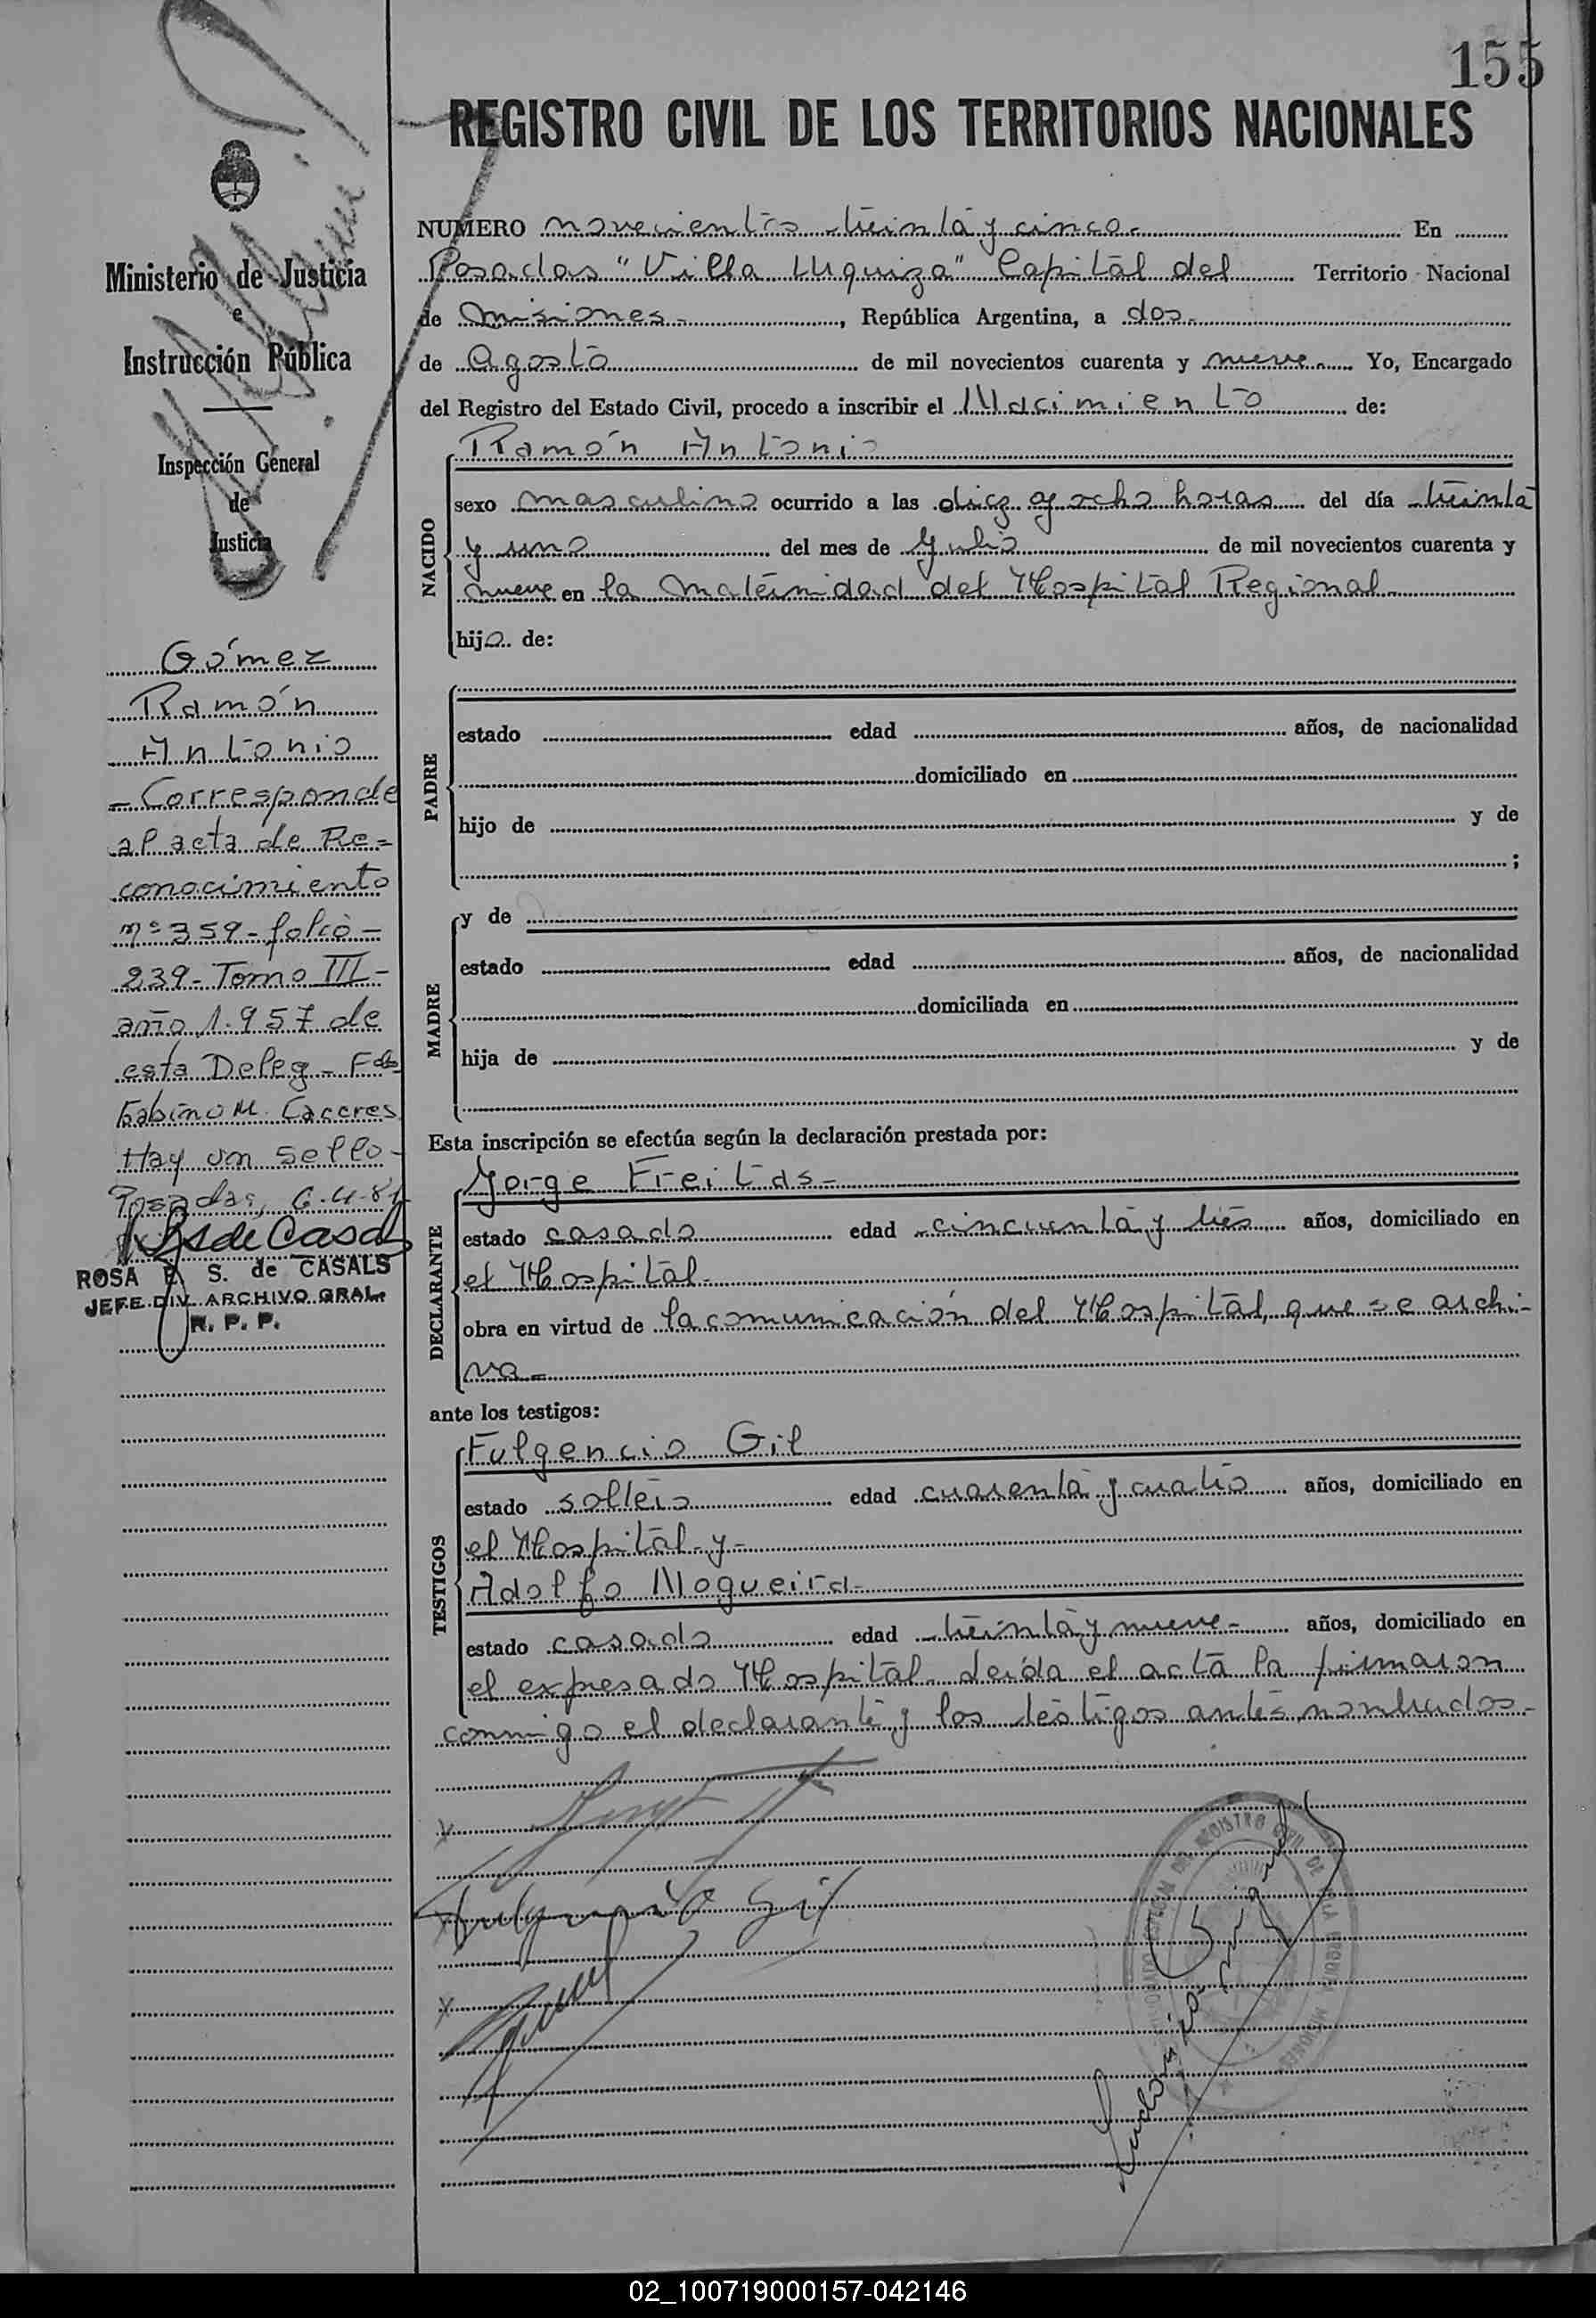 155
REGISTRO CIVIL DE LOS TERRITORIOS NACIONALES
Ministerio de Justicia
e
Instrucción Pública
Inspección General
de
Justicia
Gómez
Ramón
Antonio
- Corresponde
al acta de Re=
conocimiento
nº 359 - folio -
239 - Tomo III -
año 1.957 de
esta Deleg - Fdo
Gabino M. Caceres
Hay un sello -
Posadas, 6-4-81
ROSA E. S. de CASALS
JEFE DIV. ARCHIVO GRAL.
R. P. P.
NUMERO novecientos treinta y cinco.- En
Posadas "Villa Urquiza" Capital del Territorio Nacional
de Misiones.- , República Argentina, a dos.-
de Agosto de mil novecientos cuarenta y nueve.- Yo, Encargado
del Registro del Estado Civil, procedo a inscribir el Nacimiento de:
NACIDO
Ramón Antonio
sexo masculino ocurrido a las diez y ocho horas del día treinta
y uno del mes de Julio de mil novecientos cuarenta y
nueve en la Maternidad del Hospital Regional.-
hijo de:
PADRE
estado edad años, de nacionalidad
domiciliado en
hijo de y de
;
MADRE
y de
estado edad años, de nacionalidad
domiciliada en
hija de y de
Esta inscripción se efectúa según la declaración prestada por:
DECLARANTE
Jorge Freitas.-
estado casado edad cincuenta y tres años, domiciliado en
el Hospital.-
obra en virtud de la comunicación del Hospital, que se archi-
va.-
ante los testigos:
TESTIGOS
Fulgencio Gil
estado soltero edad cuarenta y cuatro años, domiciliado en
el Hospital y-
Adolfo Nogueira.-
estado casado edad treinta y nueve.- años, domiciliado en
el expresado Hospital. Leída el acta la firmaron
conmigo el declarante y los testigos antes nombrados.-
Fulgencio Gil
02_100719000157-042146